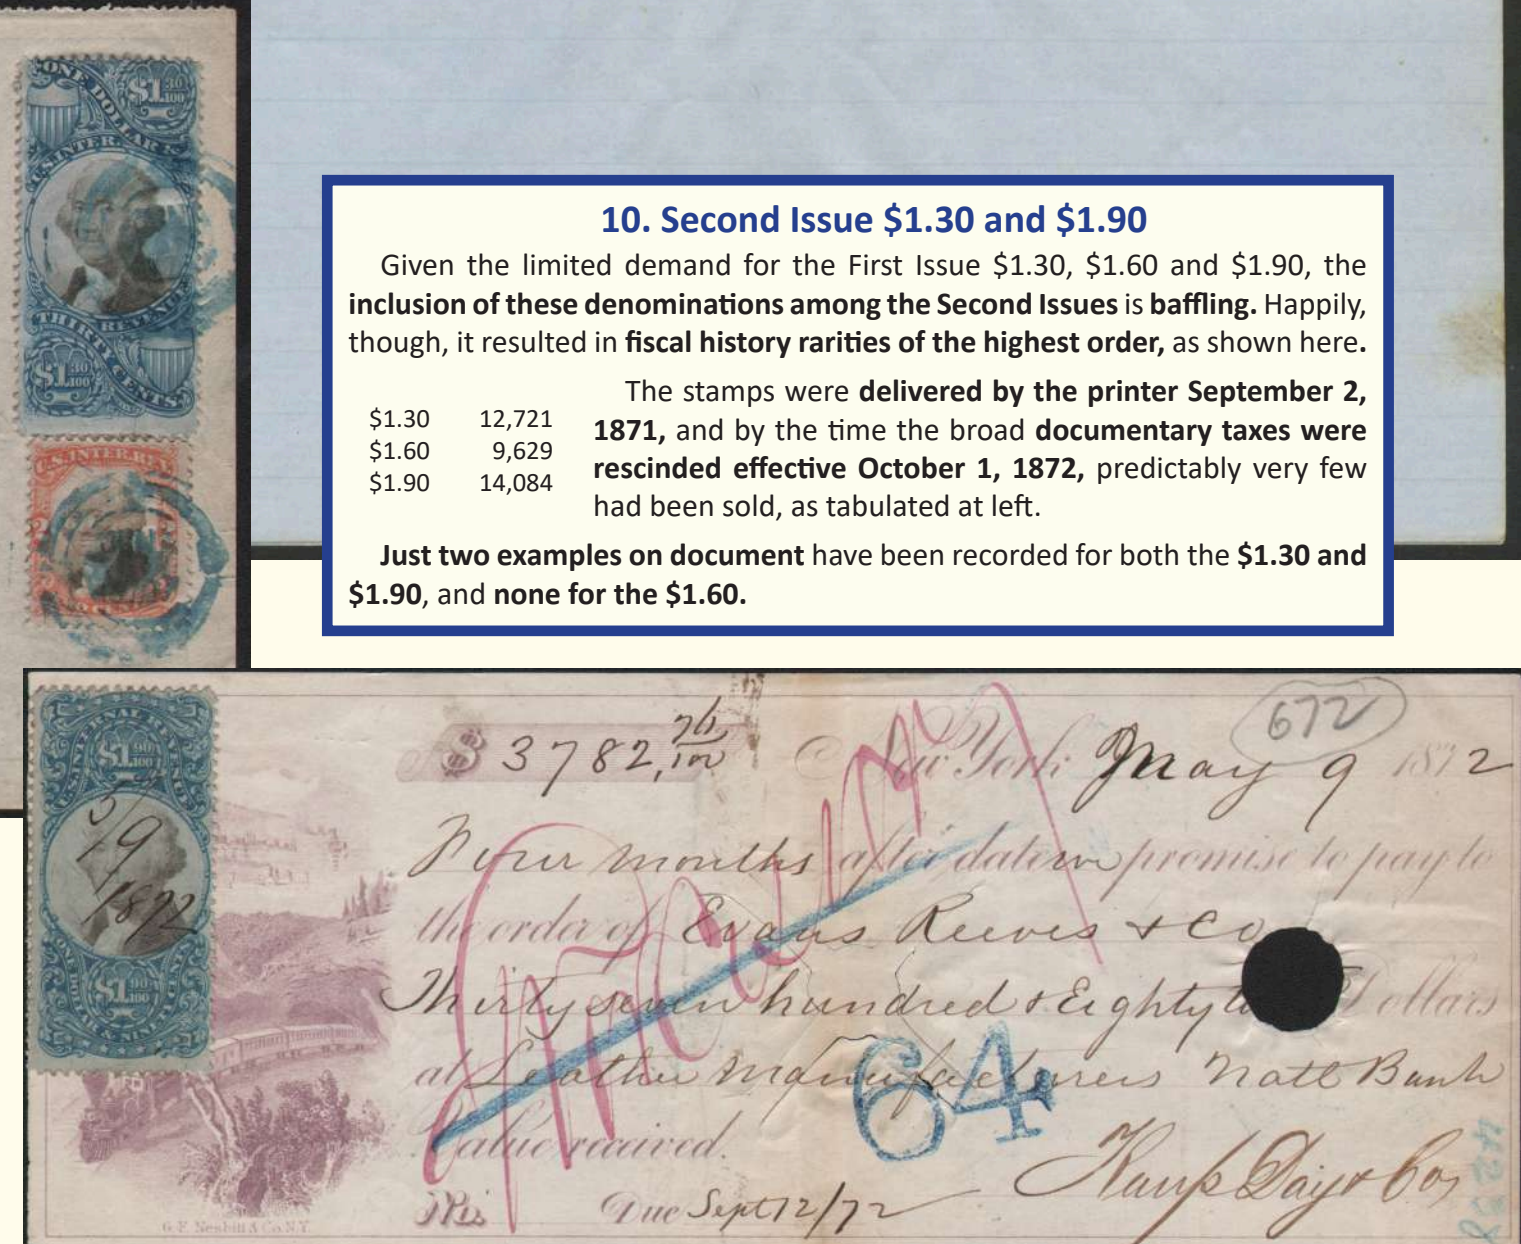 ONE DOLLAR &
$1 30/100
U.S. INTER.
REVENUE
THIRTY CENTS
$1 30/100
U.S. INTER. REV.
10. Second Issue $1.30 and $1.90
Given the limited demand for the First Issue $1.30, $1.60 and $1.90, the
inclusion of these denominations among the Second Issues is baffling. Happily,
though, it resulted in fiscal history rarities of the highest order, as shown here.
$1.30 12,721
$1.60 9,629
$1.90 14,084
The stamps were delivered by the printer September 2,
1871, and by the time the broad documentary taxes were
rescinded effective October 1, 1872, predictably very few
had been sold, as tabulated at left.
Just two examples on document have been recorded for both the $1.30 and
$1.90, and none for the $1.60.
$1 90/100
5/9
1872
$1 90/100
672
$ 3782, 76/100 New York May 9 1872
Four months after date we promise to pay to
the order of Evans Reeves & Co
Thirty seven hundred & Eighty Dollars
at Leather Manufacturers Natl Bank
64
Value received.
Due Sept 12/72
4238
G.F. Nesbitt & Co N.Y.